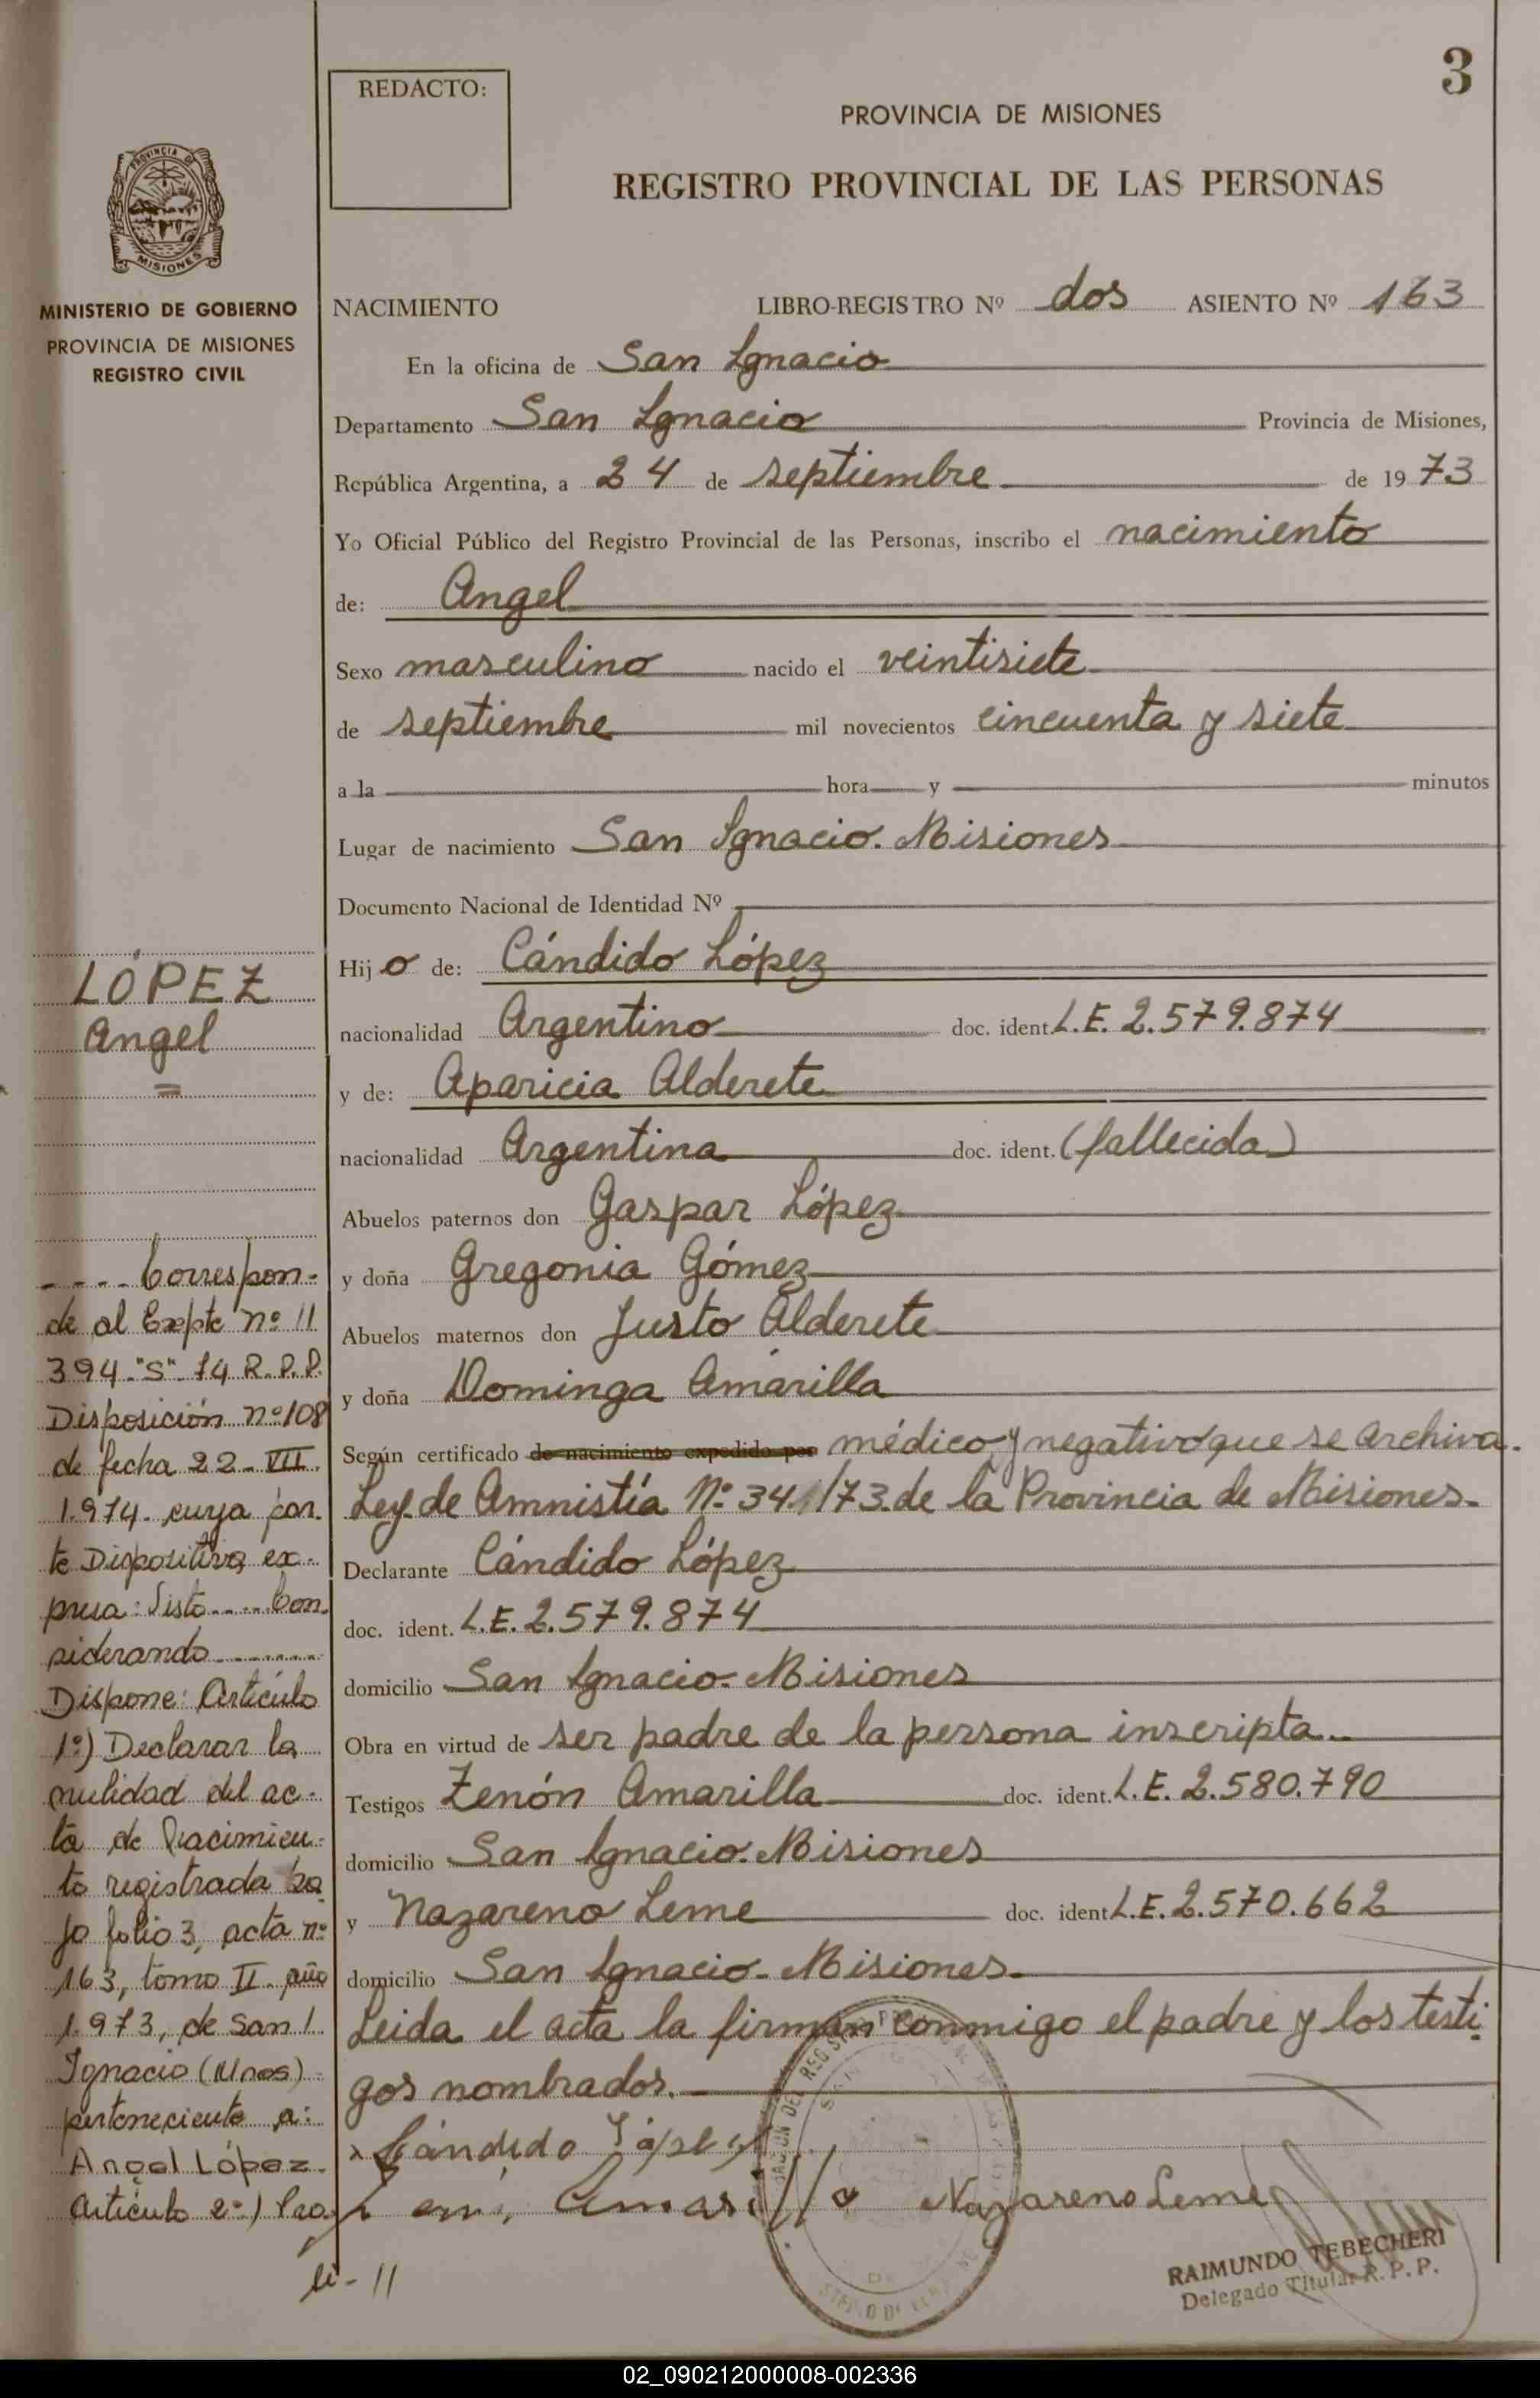 3
REDACTO:
PROVINCIA DE MISIONES
REGISTRO PROVINCIAL DE LAS PERSONAS
PROVINCIA DE
MISIONES
MINISTERIO DE GOBIERNO
PROVINCIA DE MISIONES
REGISTRO CIVIL
NACIMIENTO LIBRO-REGISTRO Nº dos ASIENTO Nº 163
En la oficina de San Ignacio
Departamento San Ignacio Provincia de Misiones,
República Argentina, a 24 de septiembre de 1973
Yo Oficial Público del Registro Provincial de las Personas, inscribo el nacimiento
de: Angel
Sexo masculino nacido el veintisiete
de septiembre mil novecientos cincuenta y siete
a la hora y minutos
Lugar de nacimiento San Ignacio. Misiones
Documento Nacional de Identidad Nº
Hijo de: Cándido López
nacionalidad Argentino doc. ident. L.E. 2.579.874
y de: Aparicia Alderete
nacionalidad Argentina doc. ident. (fallecida)
Abuelos paternos don Gaspar López
y doña Gregonia Gómez
Abuelos maternos don Justo Alderete
y doña Dominga Amarilla
Según certificado de nacimiento expedido por médico y negativo que se archiva.
Ley de Amnistía Nº 341/73 de la Provincia de Misiones.
Declarante Cándido López
doc. ident. L.E. 2.579.874
domicilio San Ignacio. Misiones
Obra en virtud de ser padre de la persona inscripta..
Testigos Zenón Amarilla doc. ident. L.E. 2.580.790
domicilio San Ignacio. Misiones
y Nazareno Leme doc. ident. L.E. 2.570.662
domicilio San Ignacio. Misiones.
Leida el acta la firman conmigo el padre y los testi-
gos nombrados.
Cándido López
Amarilla Nazareno Leme
RAIMUNDO TEBECHERI
Delegado Titular R. P. P.
LÓPEZ
Angel
=
---- Correspon-
de al Expte nº 11
394-"S"-74 R.P.P.
Disposición nº 108
de fecha 22-VII.
1.974. cuya par-
te Dispositiva ex-
presa: Visto.... Con-
siderando........
Dispone: Artículo
1º) Declarar la
nulidad del ac-
ta de Nacimien-
to registrada ba-
jo folio 3, acta nº
163, tomo II año
1.973, de San I.
Ignacio (Mnes)
perteneciente a:
Angel López.
Artículo 2º)
///-11
02_090212000008-002336